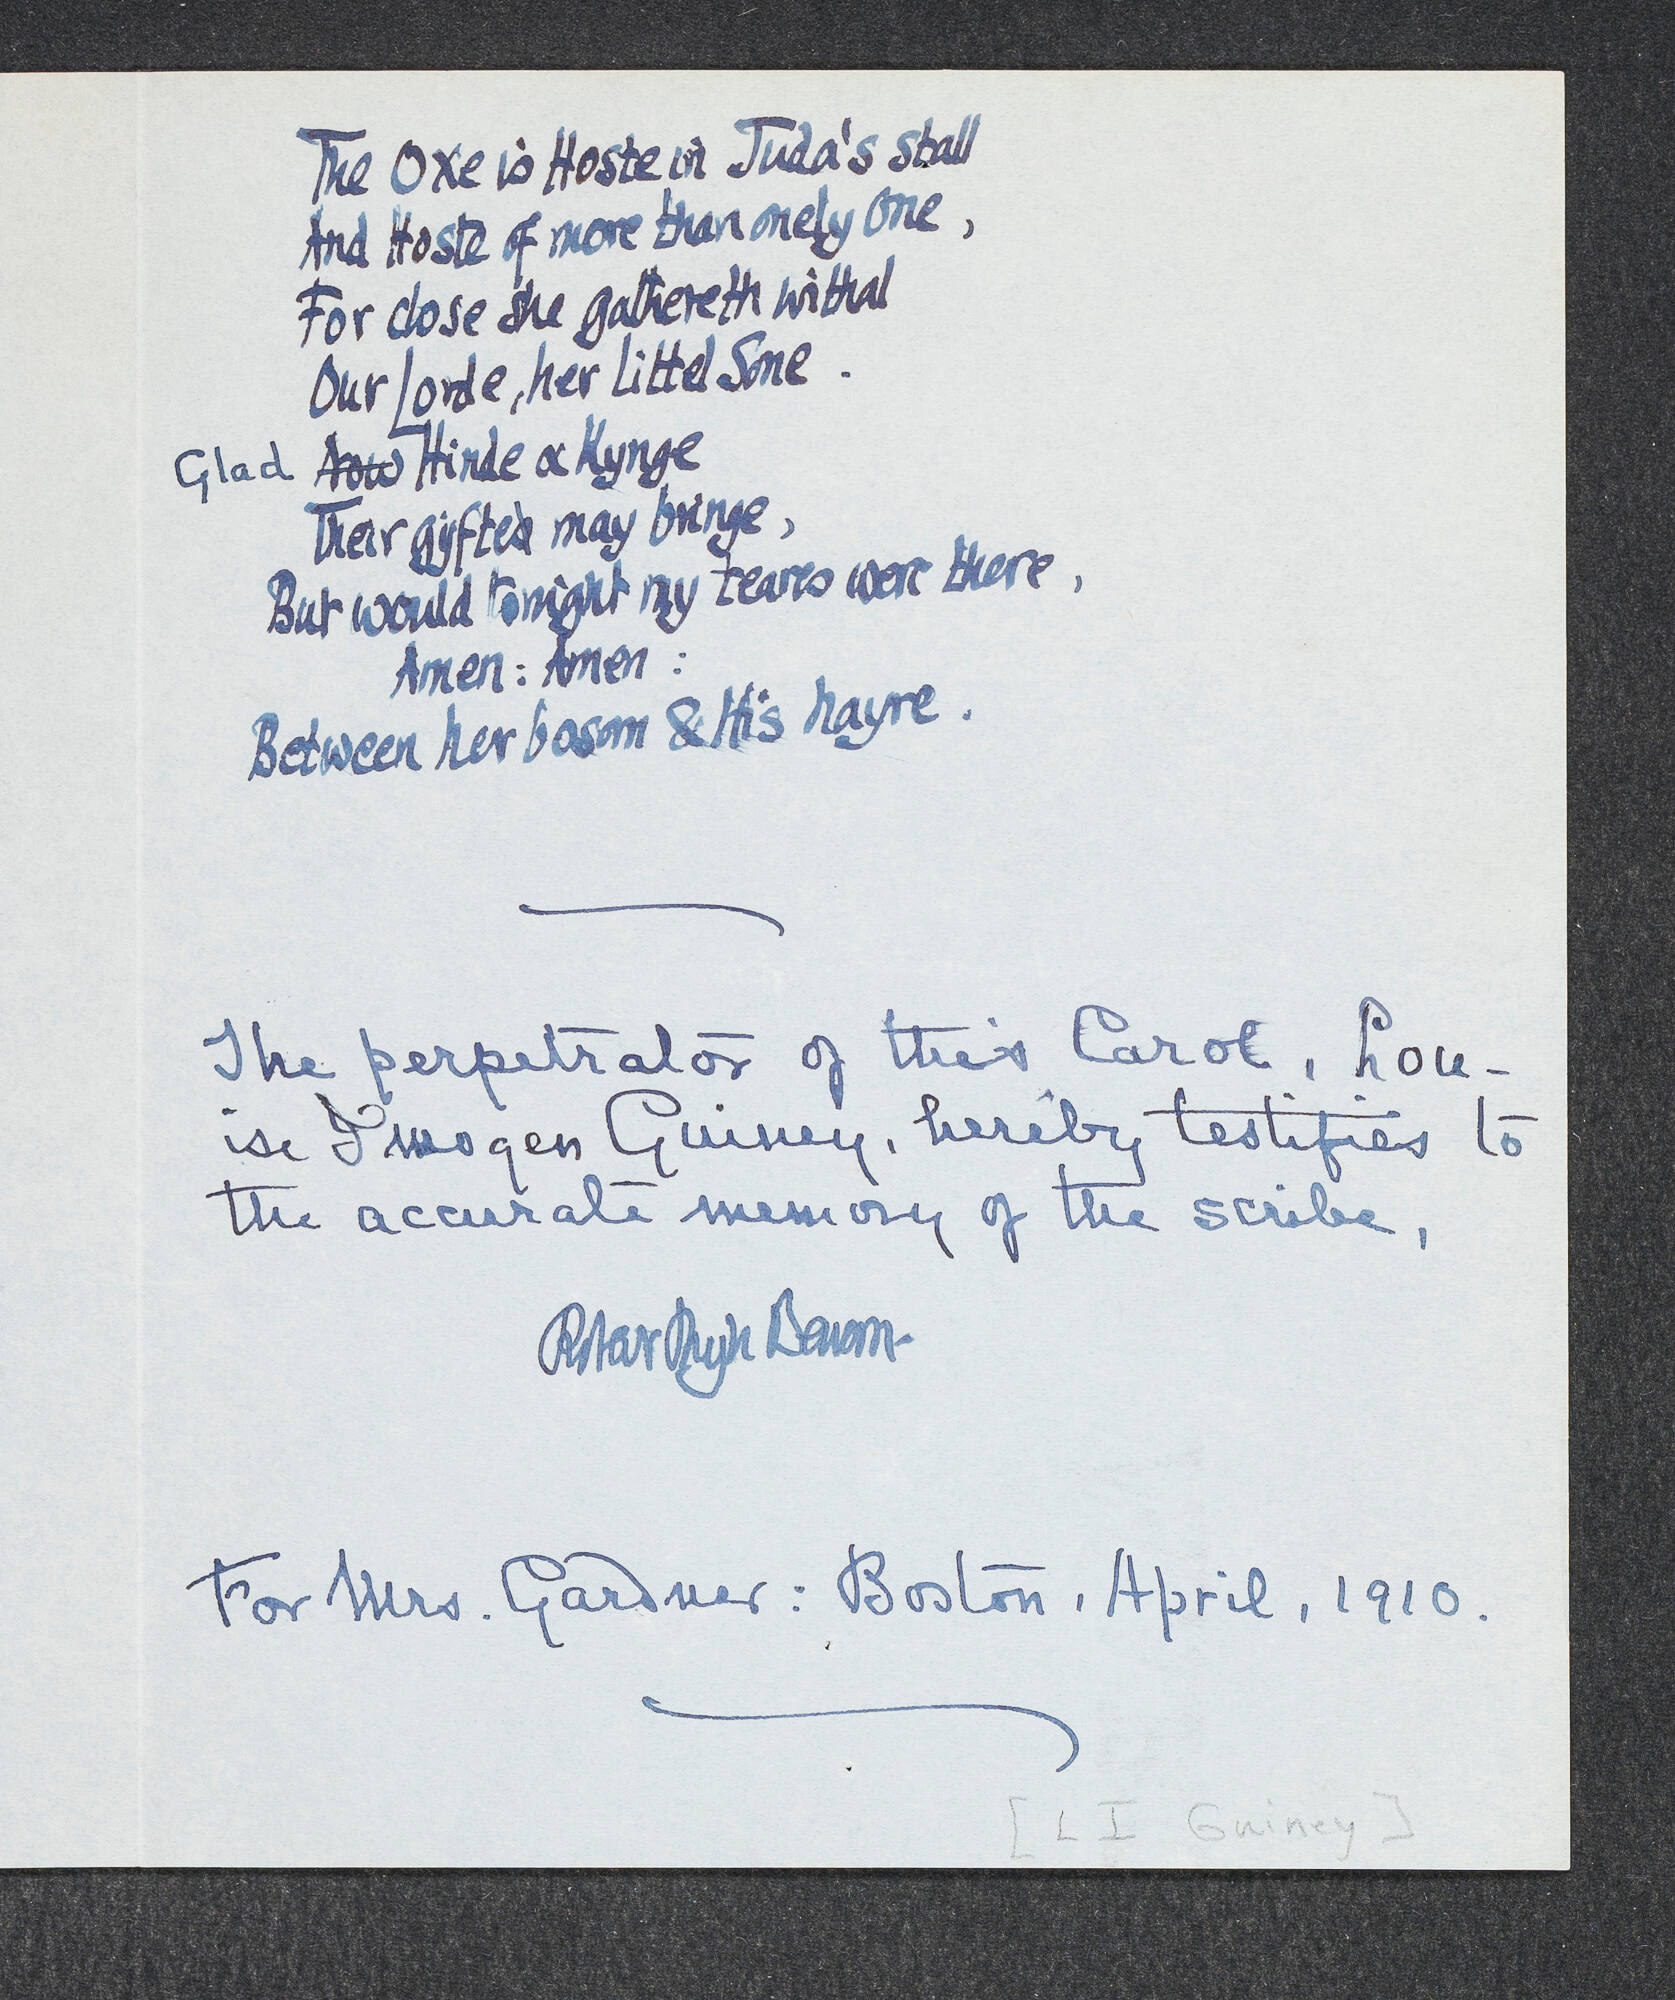 The Oxe is Hoste in Juda's stall
And Hoste of more than onely One,
For close she gathereth withal
Our Lorde, her littel Sone.
Glad Now Hinde & Kynge
Their gyftes may bringe,
But would tonight my teares were there,
Amen: Amen:
Between her bosom & His hayre.
The perpetrator of this Carol, Lou-
ise Imogen Guiney, hereby testifies to
the accurate memory of the scribe,
For Mrs. Gardner: Boston, April, 1910.
[L I Guiney]